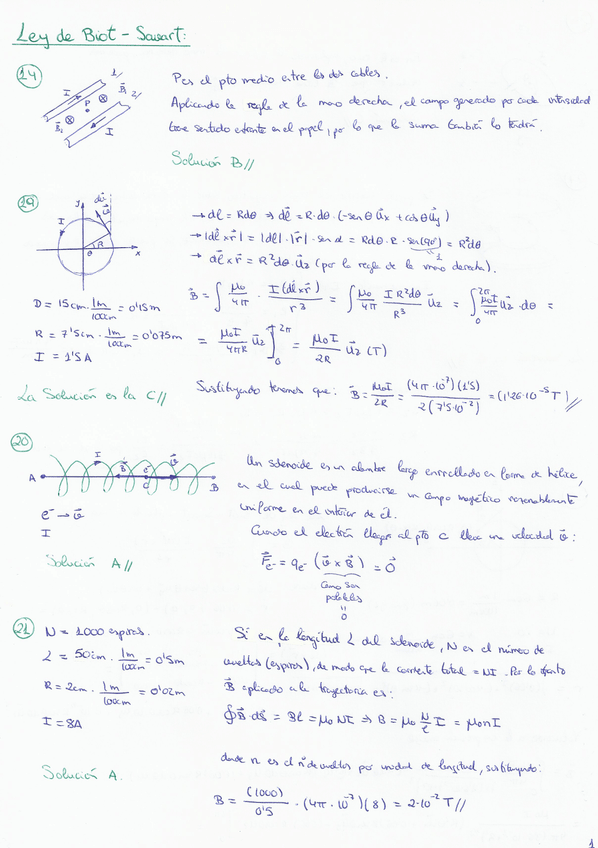 Ley de Biot-Savart:
14
I
1/
B₁
2/
P
B₂
I
Por el pto medio entre los dos cables.
Aplicando la regla de la mano derecha, el campo generado por cada intensidad
tiene sentido entrante en el papel, por lo que la suma también lo tendrá.
Solución B//
19
y
I
R
θ
x
→ dl = Rdθ ⇒ dl⃗ = R·dθ·(-sen θ u⃗x + cos θ u⃗y)
→ |dl⃗ x r⃗| = |dl⃗|·|r⃗|·sen α = Rdθ·R·sen(90°) = R²dθ
1
→ dl⃗ x r⃗ = R²dθ·u⃗z (por la regla de la mano derecha).
B⃗ = ∫ μ₀/4π · I(dl⃗ x r⃗)/r³ = ∫ μ₀/4π I R²dθ/R³ u⃗z = ∫₀^2π μ₀I/4πR u⃗z · dθ =
D = 15cm · 1m/100cm = 0'15m
R = 7'5cm · 1m/100cm = 0'075m
I = 1'5 A
= μ₀I/4πR u⃗z θ]₀^2π = μ₀I/2R u⃗z (T)
La Solución es la C//
Sustituyendo tenemos que: B⃗ = μ₀I/2R = (4π·10⁻⁷)(1'5)/2(7'5·10⁻²) = (1'26·10⁻⁵ T)//
20
I
B⃗
e⁻
v⃗
A
C
B
e⁻ → v⃗
I
Solución A//
Un solenoide es un alambre largo enrrollado en forma de hélice,
en el cual puede producirse un campo magnético razonablemente
uniforme en el interior de él.
Cuando el electrón llega al pto C lleva una velocidad v⃗:
F⃗e⁻ = qe⁻ (v⃗ x B⃗) = 0⃗
como son
paralelos
0
21
N = 1000 espiras.
L = 50cm · 1m/100cm = 0'5m
R = 2cm · 1m/100cm = 0'02m
I = 8A
Solución A.
Si en la longitud L del solenoide, N es el número de
vueltas (espiras), de modo que la corriente total = NI. Por lo tanto
B⃗ aplicado a la trayectoria es:
∮B⃗·ds⃗ = Bl = μ₀NI ⇒ B = μ₀ N/l I = μ₀nI
donde n es el nº de vueltas por unidad de longitud, sustituyendo:
B = (1000)/0'5 · (4π·10⁻⁷)(8) = 2·10⁻² T//
1